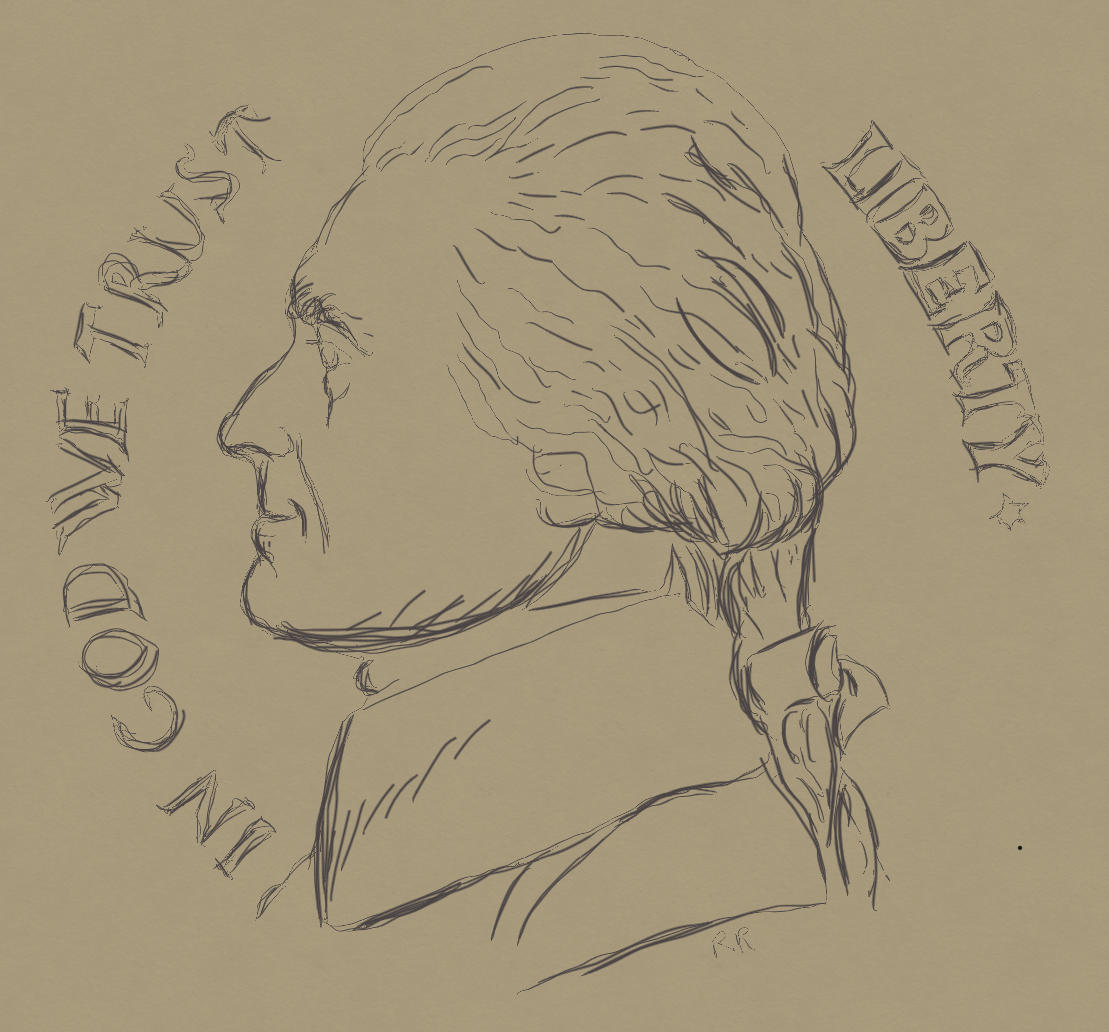 IN GOD WE TRUST
LIBERTY
RR